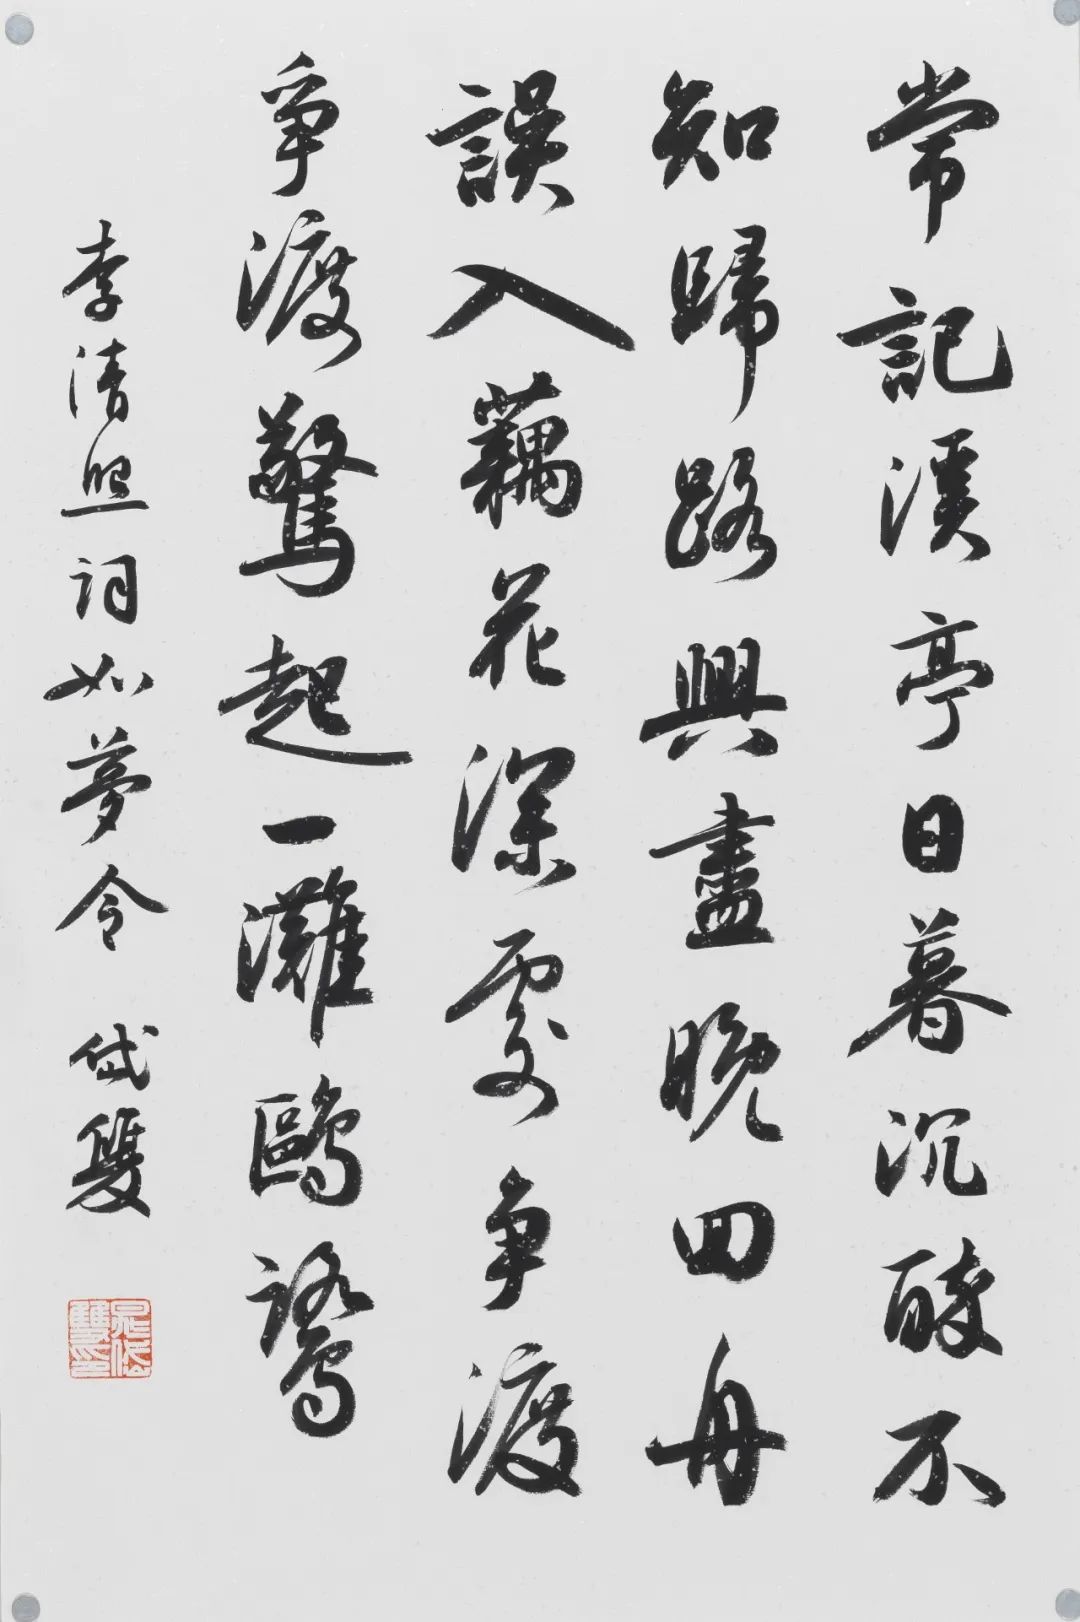 常記溪亭日暮沉醉不
知歸路興盡晚回舟
誤入藕花深處争渡
爭渡驚起一灘鷗鷺
李清照詞如夢令 岱雙
晁岱雙印